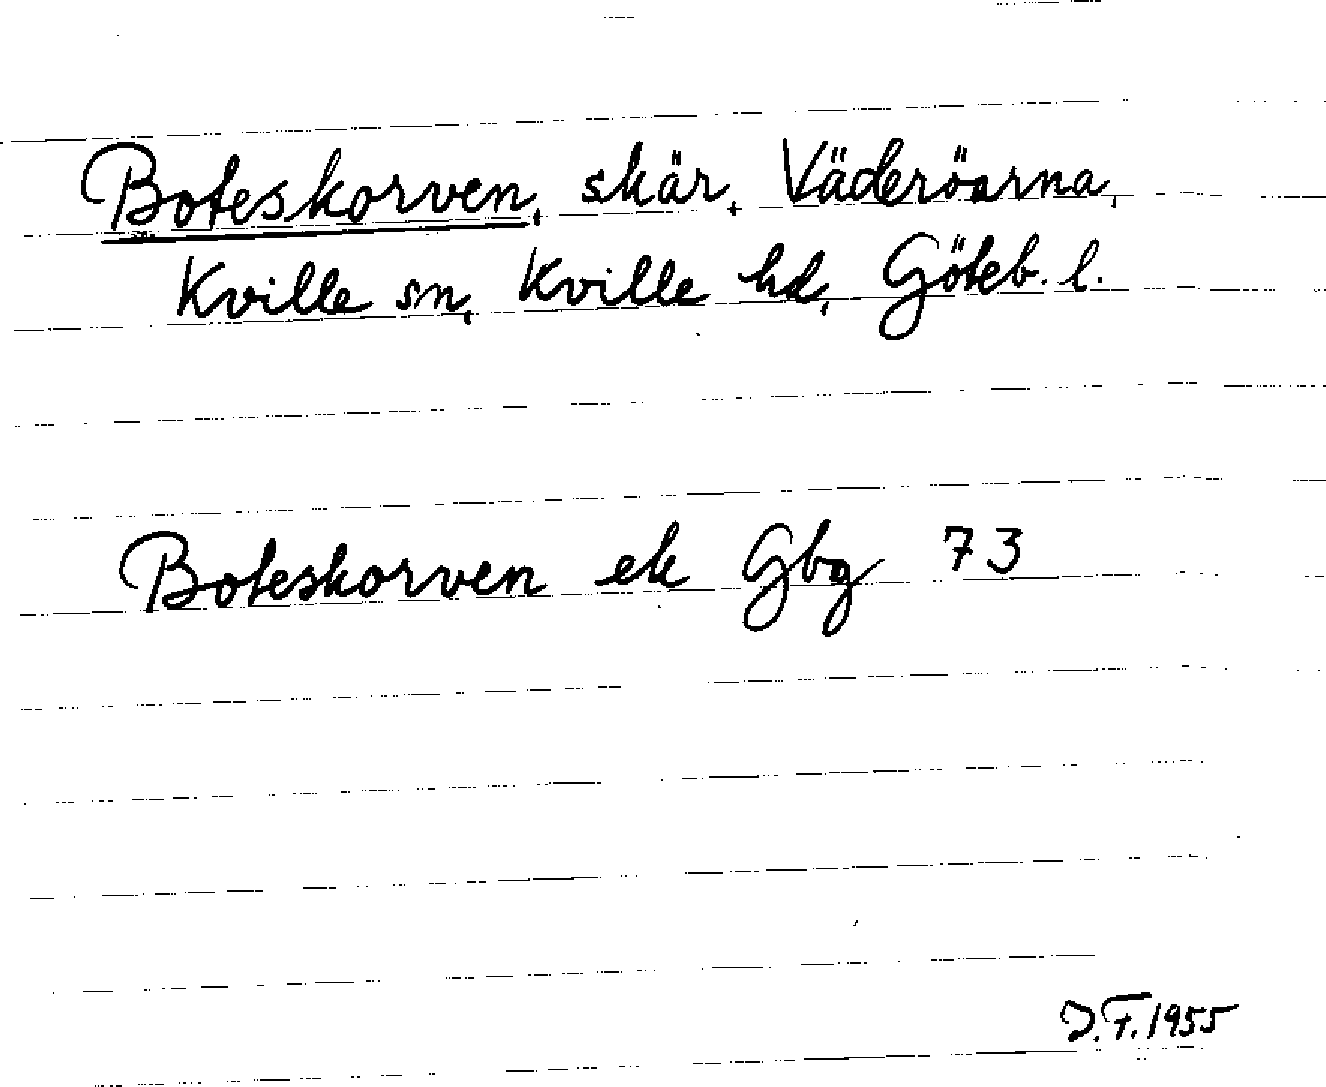 Boteskorven, skär, Väderöarna,
Kville sn, Kville hd, Göteb. l.
Boteskorven ek Gbg 73
D.F. 1955